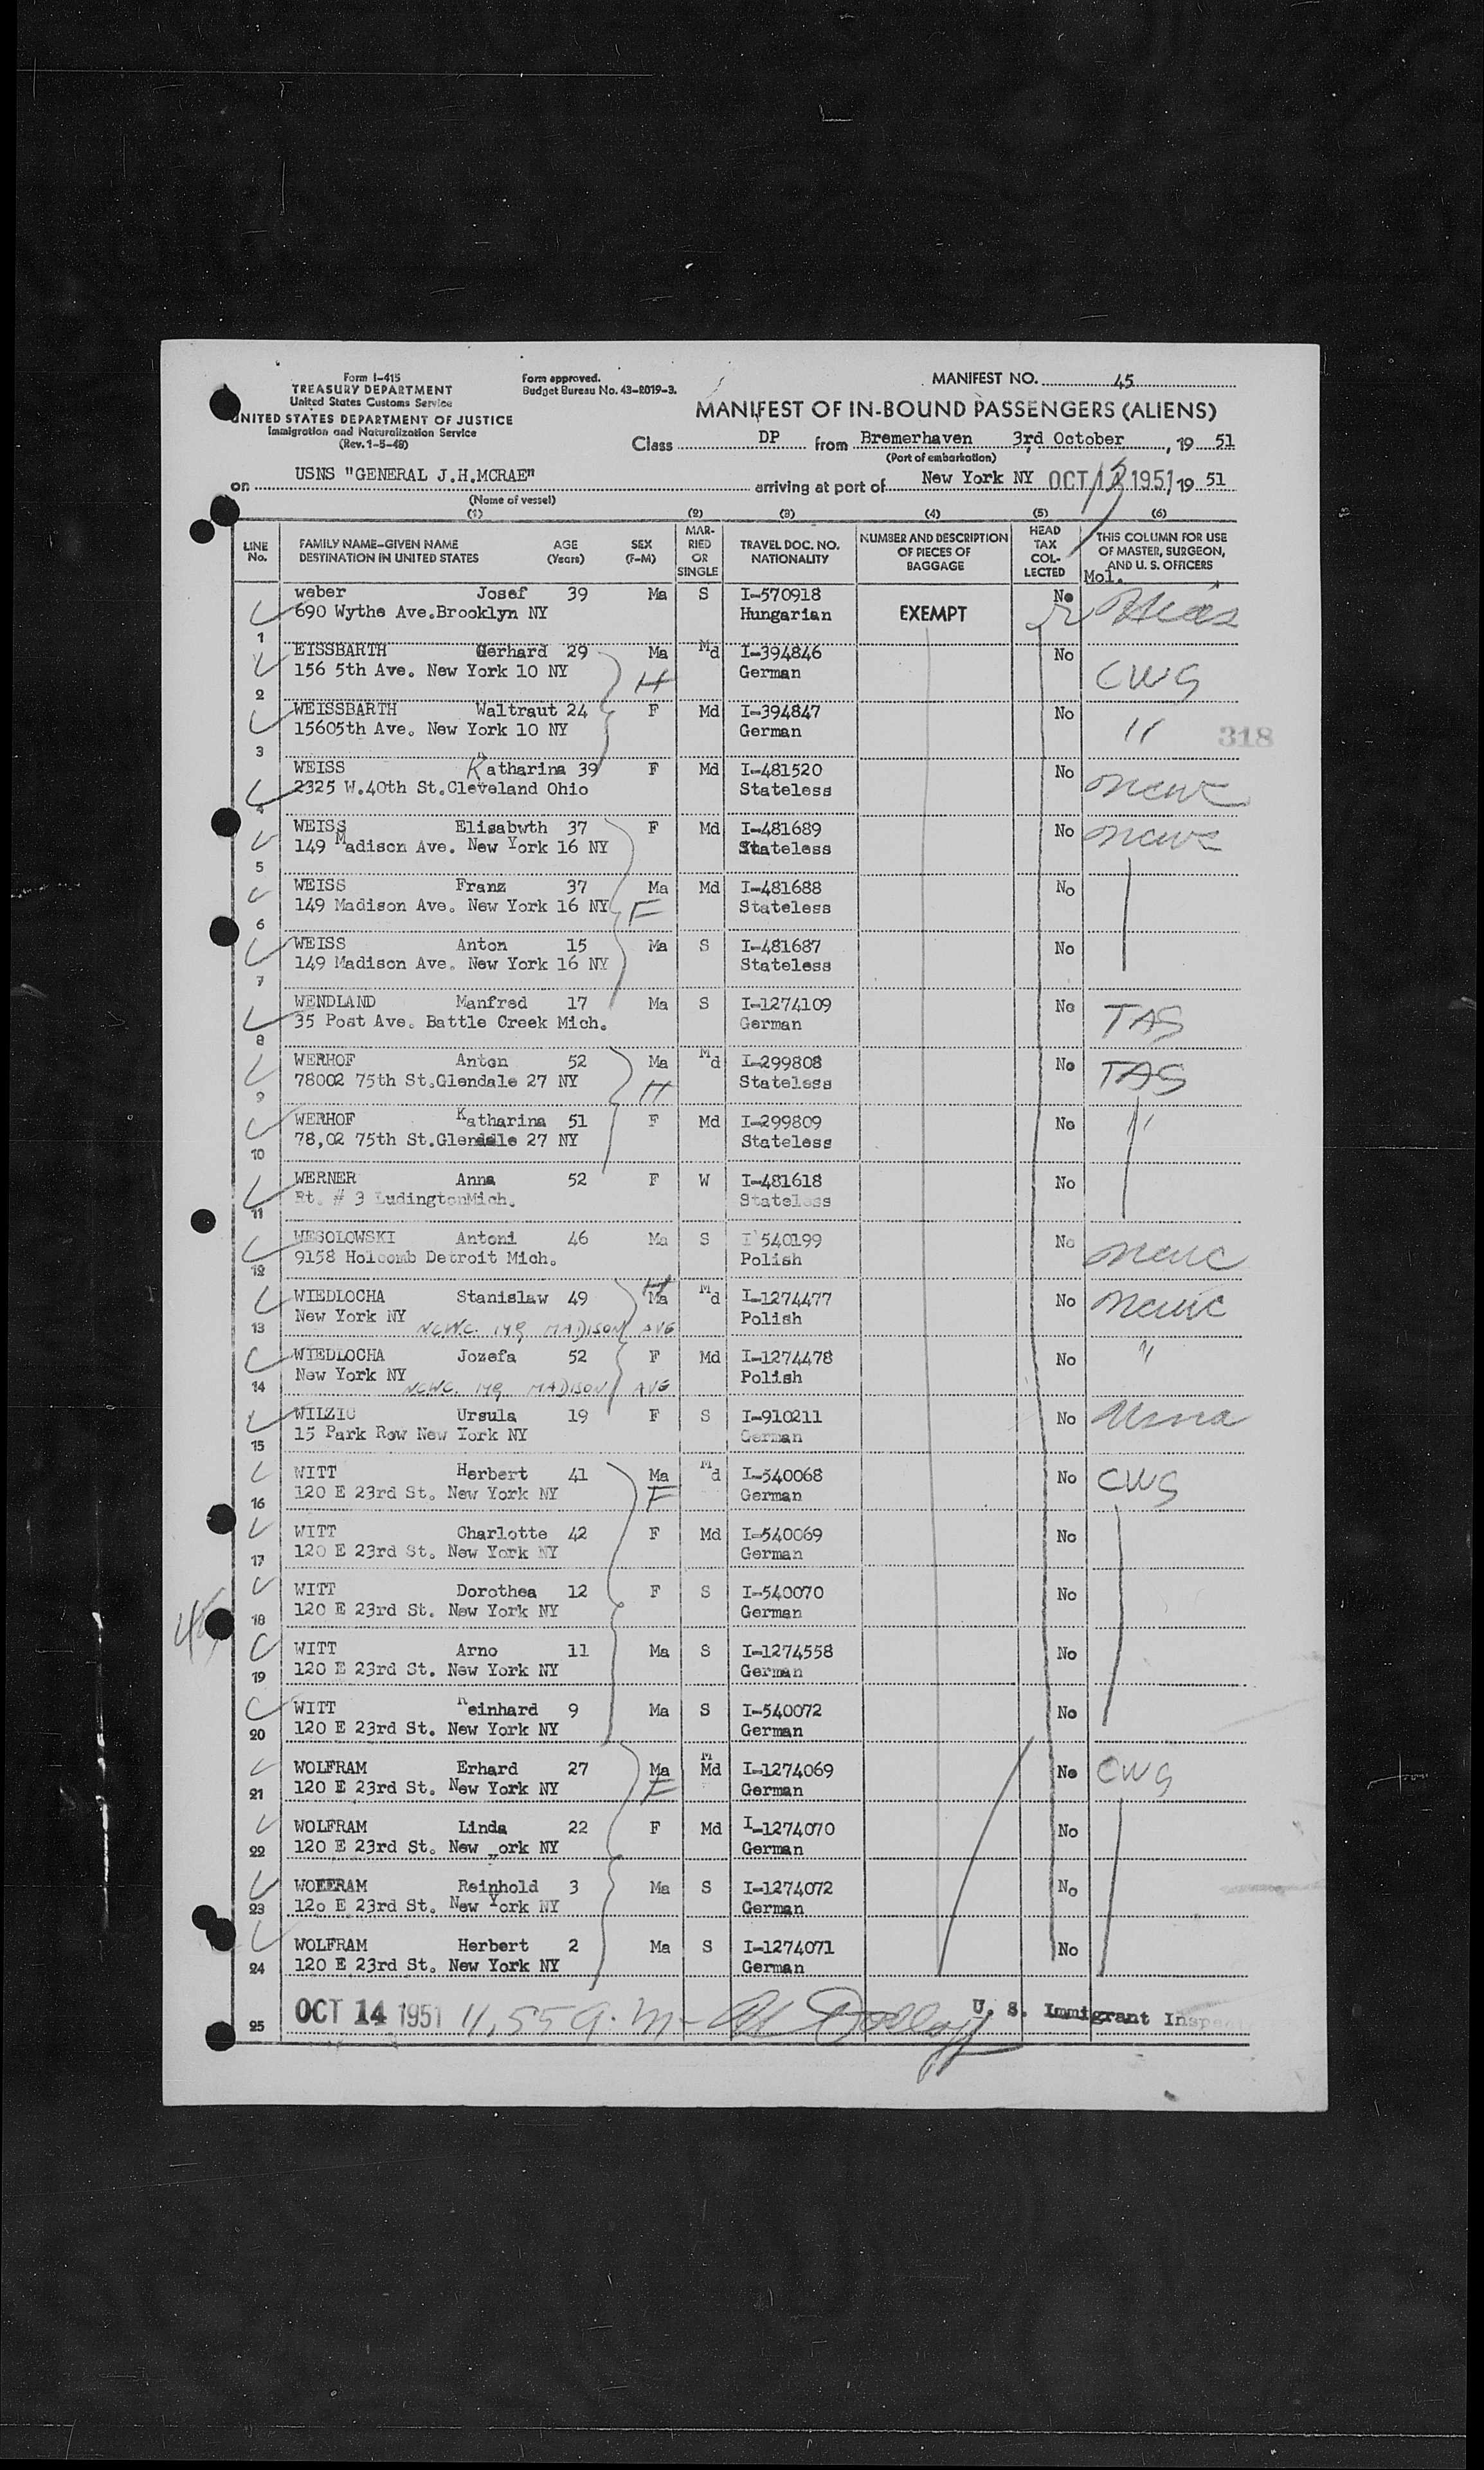 Form I-415
TREASURY DEPARTMENT
United States Customs Service
UNITED STATES DEPARTMENT OF JUSTICE
Immigration and Naturalization Service
(Rev. 1-5-48)
Form approved.
Budget Bureau No. 43-R019-3.
MANIFEST NO. 45
MANIFEST OF IN-BOUND PASSENGERS (ALIENS)
Class DP from Bremerhaven 3rd October, 19 51
(Port of embarkation)
on USNS "GENERAL J.H.MCRAE" arriving at port of New York NY OCT 13 1951, 19 51
(Name of vessel)
(1) (2) (3) (4) (5) (6)
LINE No. FAMILY NAME-GIVEN NAME DESTINATION IN UNITED STATES AGE (Years) SEX (F-M) MARRIED OR SINGLE TRAVEL DOC. NO. NATIONALITY NUMBER AND DESCRIPTION OF PIECES OF BAGGAGE HEAD TAX COLLECTED THIS COLUMN FOR USE OF MASTER, SURGEON, AND U. S. OFFICERS
Mol.
weber Josef 39 Ma S I-570918 No
690 Wythe Ave.Brooklyn NY Hungarian EXEMPT Hias
1
EISSBARTH Gerhard 29 Ma Md I-394846 No
156 5th Ave. New York 10 NY H German CWS
2
WEISSBARTH Waltraut 24 F Md I-394847 No
15605th Ave. New York 10 NY German "
318
3
WEISS Katharina 39 F Md I-481520 No
2325 W.40th St.Cleveland Ohio Stateless ncwc
4
WEISS Elisabwth 37 F Md I-481689 No ncwc
149 Madison Ave. New York 16 NY Stateless
5
WEISS Franz 37 Ma Md I-481688 No
149 Madison Ave. New York 16 NY F Stateless
6
WEISS Anton 15 Ma S I-481687 No
149 Madison Ave. New York 16 NY Stateless
7
WENDLAND Manfred 17 Ma S I-1274109 No
35 Post Ave. Battle Creek Mich. German TAS
8
WERHOF Anton 52 Ma Md I-299808 No
78002 75th St.Glendale 27 NY H Stateless TAS
9
WERHOF Katharina 51 F Md I-299809 No
78,02 75th St.Glendale 27 NY Stateless "
10
WERNER Anna 52 F W I-481618 No
Rt. # 3 LudingtonMich. Stateless
11
WESOLOWSKI Antoni 46 Ma S I 540199 No
9158 Holcomb Detroit Mich. Polish ncwc
12
WIEDLOCHA Stanislaw 49 H Ma Md I-1274477 No ncwc
New York NY NCWC. 149 MADISON AVE Polish
13
WIEDLOCHA Jozefa 52 F Md I-1274478 No "
New York NY NCWC. 149 MADISON AVE Polish
14
WILZIU Ursula 19 F S I-910211 No
15 Park Row New York NY German
15
WITT Herbert 41 Ma Md I-540068 No CWS
120 E 23rd St. New York NY F German
16
WITT Charlotte 42 F Md I-540069 No
120 E 23rd St. New York NY German
17
WITT Dorothea 12 F S I-540070 No
120 E 23rd St. New York NY German
18
WITT Arno 11 Ma S I-1274558 No
120 E 23rd St. New York NY German
19
WITT Reinhard 9 Ma S I-540072 No
120 E 23rd St. New York NY German
20
WOLFRAM Erhard 27 Ma Md I-1274069 No CWS
120 E 23rd St. New York NY F German
21
WOLFRAM Linda 22 F Md I-1274070 No
120 E 23rd St. New York NY German
22
WOLFRAM Reinhold 3 Ma S I-1274072 No
12o E 23rd St. New York NY German
23
WOLFRAM Herbert 2 Ma S I-1274071 No
120 E 23rd St. New York NY German
24
OCT 14 1951 11,55 a.m- U. S. Immigrant Inspector
25